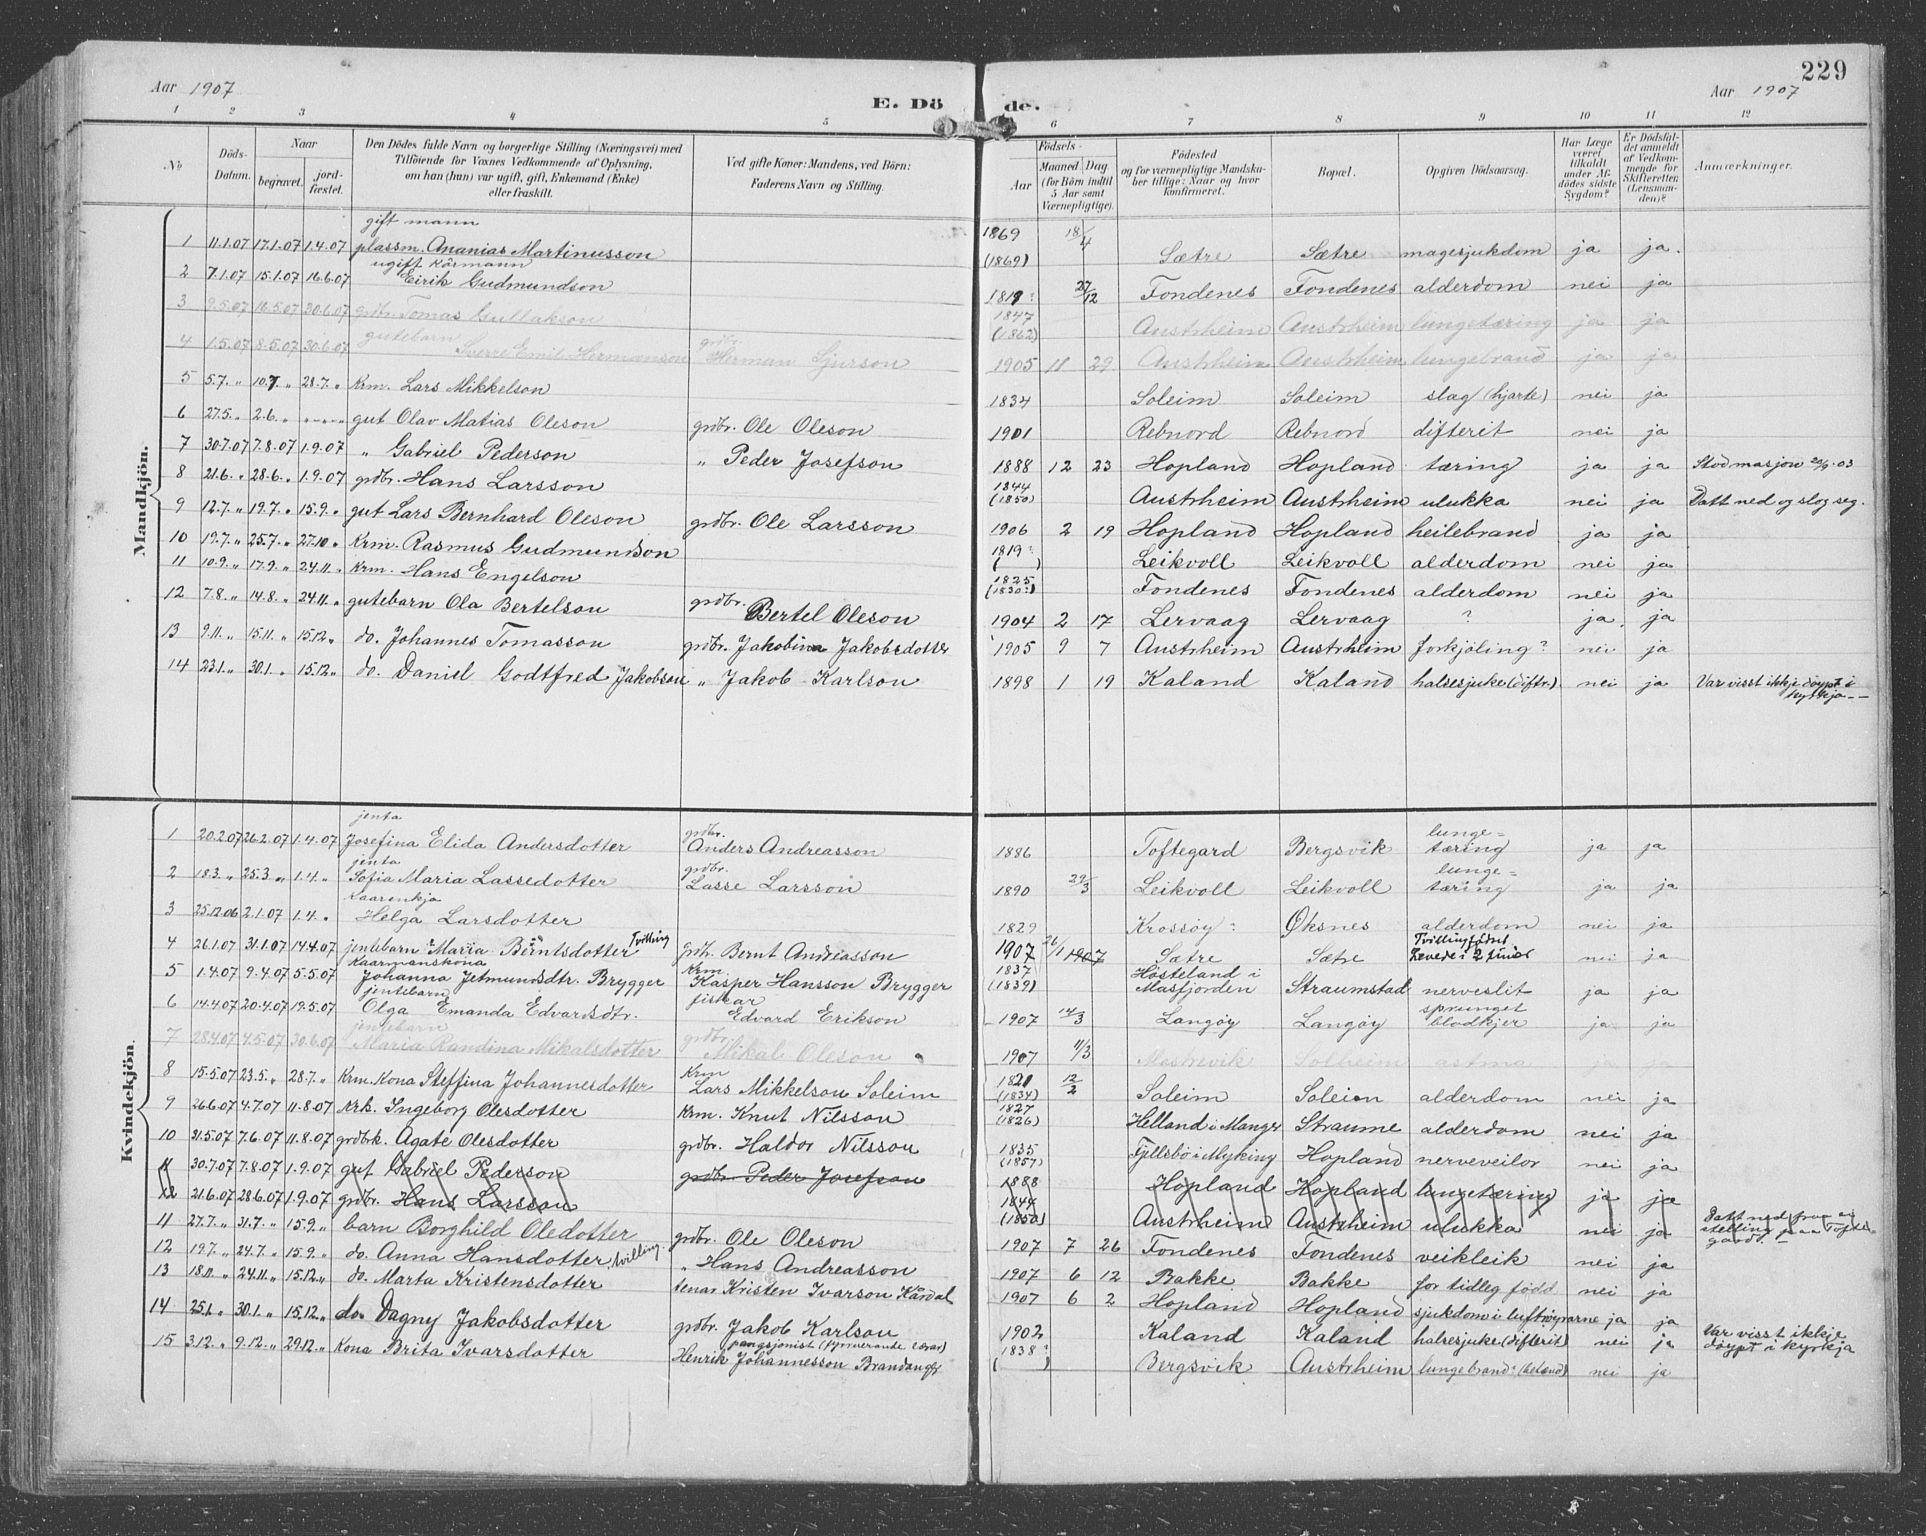 229
Aar 1907
Aar 1907
E. Döde.
1 2 3 4 5 6 7 8 9 10 11 12
No
Döds-Datum.
Naar
begravet.
jordfæstet.
Den Dödes fulde Navn og borgerlige Stilling (Næringsvei) med
Tilföiende for Voxnes Vedkommende af Oplysning,
om han (hun) var ugift, gift, Enkemand (Enke)
eller fraskilt.
Ved gifte Koner: Mandens, ved Börn:
Faderens Navn og Stilling.
Födsels-
Aar
Maaned Dag
(for Börn indtil
5 Aar samt
Værnepligtige).
Födested
og for værnepligtige Mandska-
ber tillige: Naar og hvor
konfirmeret.
Bopæl.
Opgiven Dödsaarsag.
Har Læge
været
tilkaldt
under Af-
dödes sidste
Sygdom?
Er Dödsfal-
det anmeldt
af Vedkom-
mende for
Skifteretten
(Lensman-
den)?
Anmærkninger.
Mandkjön.
1 11.1.07 17.1.07 1.4.07 gift mann plassm. Ananias Martinusson 1869 (1869) 18/4 Sætre Sætre magesjukdom ja ja.
2 7.1.07 15.1.07 16.6.07 ugift kårmann Eirik Gudmundson 27/12 Fondenes Fondenes alderdom nei ja
3 2.5.07 16.5.07 30.6.07 grdbr. Tomas Gullakson 1847 (1862) Austrheim Austrheim lungetæring ja ja
4 1.5.07 8.5.07 30.6.07 gutebarn Sverre Emil Hermanson grdbr. Herman Sjurson 1905 11 29 Austrheim Austrheim lungebrand ja ja
5 5.7. " 10.7. " 28.7. " Krm. Lars Mikkelson 1834 Soleim Soleim slag (hjarte) nei ja
6 27.5. " 2.6. " gut Olav Matias Oleson grdbr. Ole Oleson 1901 Rebnord Rebnord difterit nei ja
7 30.7.07 7.8.07 1.9.07 " Gabriel Pederson " Peder Josefson 1888 12 23 Hopland Hopland tæring ja ja
8 21.6. " 28.6. " 1.9.07 grdbr. Hans Larsson 1844 (1850) Austrheim Austrheim ulukka nei ja Datt ned og slog seg.
9 12.7. " 19.7. " 15.9. " gut Lars Bernhard Oleson grdbr. Ole Larsson 1906 2 19 Hopland Hopland heilebrand ja ja
10 19.7. " 25.7. " 27.10 " Krm. Rasmus Gudmundson 1819? ( ) Leikvoll Leikvoll alderdom nei ja
11 10.9. " 17.9. " 24.11. " Krm. Hans Engelson 1825 (1830?) Fondenes Fondenes alderdom nei ja
12 7.8. " 14.8. " 24.11. " gutebarn Ola Bertelson grdbr. Bertel Oleson 1904 2 17 Lervaag Lervaag ? ja ja
13 9.11. " 15.11. " 15.12. " do. Johannes Tomasson grdbr. Jakobina Jakobsdotter 1905 9 7 Austrheim Austrheim forkjöling? nei ja
14 23.1. " 30.1. " 15.12. " do. Daniel Godtfred Jakobson " Jakob Karlson 1898 1 19 Kaland Kaland halsesjuke (diftr.) nei ja Var visst ikkje döypt i kyrkja
Kvindekjön.
1 20.2.07 26.2.07 1.4.07 jenta Josefina Elida Andersdotter grdbr. Anders Andreasson 1886 Toftegard Bergsvik lunge=tæring ja ja
2 18.3. " 25.3 " 1.4. " jenta Sofia Maria Lassedotter grdbr. Lasse Larsson 1890 29/3 Leikvoll Leikvoll lunge=tæring ja ja
3 25.12.06 2.1.07 1.4. " Kaarenkja Helga Larsdotter 1829 Krossöy? Öksnes alderdom nei ja
4 26.1.07 31.1.07 14.4.07 jentebarn Maria Berntsdotter Tvilling grdbr. Bernt Andreasson 1907 26/1 1907 Sætre Sætre Tvillingfödt Levde i 2 timar nei ja
5 1.4.07 9.4.07 5.5.07 Kaarmanskona Johanna Jetmundsdtr. Brygger Krm Kasper Hansson Brygger 1837 (1839) Hösteland i Masfjorden Straumstad nerveslit ja ja
6 14.4.07 20.4.07 19.5.07 jentebarn Olga Emanda Edvardsdtr. fiskar Edvard Erikson 1907 14/3 Langöy Langöy sprunget blodkjer ja ja
7 28.4.07 4.5.07 30.6.07 jentebarn Maria Randina Mikalsdotter grdbr. Mikal Oleson 1907 11/3 Mostrevik Solheim astma
8 15.5.07 23.5. " 28.7. " Krm. Kona Steffina Johannesdotter Krm Lars Mikkelson Soleim 1821 (1834) 12/2 Soleim Soleim alderdom nei ja
9 26.6.07 4.7.07 11.8.07 Krk. Ingeborg Olesdotter Krm. Knut Nilsson 1827 (1826) Helland i Manger Straume alderdom nei ja
10 21.5.07 7.6.07 11.8.07 grdbrk. Agate Olesdotter grdbr. Haldor Nilsson 1835 (1857) Fjellsbö i Myking Hopland nerveveilor nei ja
11 30.7.07 7.8.07 1.9.07 gut Gabriel Pederson grdbr. Peder Josefson 1888 Hopland Hopland lungetæring ja ja
12 21.6.07 28.6.07 1.9.07 grdbr. Hans Larsson 1844 (1850) Austrheim Austrheim ulukka nei ja
11 27.7. " 31.7. " 15.9. " barn Borghild Oledotter grdbr. Ole Oleson 1907 7 26 Fondenes Fondenes veikleik nei ja
12 19.7. " 24.7. " 15.9. " do. Anna Hansdotter tvilling " Hans Andreasson 1907 6 12 Bakke Bakke for tidleg född nei ja
13 18.11. " 24.11. " 15.12. " do. Marta Kristensdotter tenar Kristen Ivarson Kårdal 1907 6 2 Hopland Hopland sjukdom i luftröyrarne ja ja
14 25.1. " 30.1. " 15.12. " do. Dagny Jakobsdotter grdbr. Jakob Karlson 1902 Kaland Kaland halsesjuke (difterit) nei ja Var visst ikkje döypt i kyrkja
15 3.12. " 9.12. " 29.12. " Kona Brita Ivarsdotter pengsjonist Henrik Johannesson Brandanger 1838? ( ) Bergsvik Austrheim lungebrand? nei ja